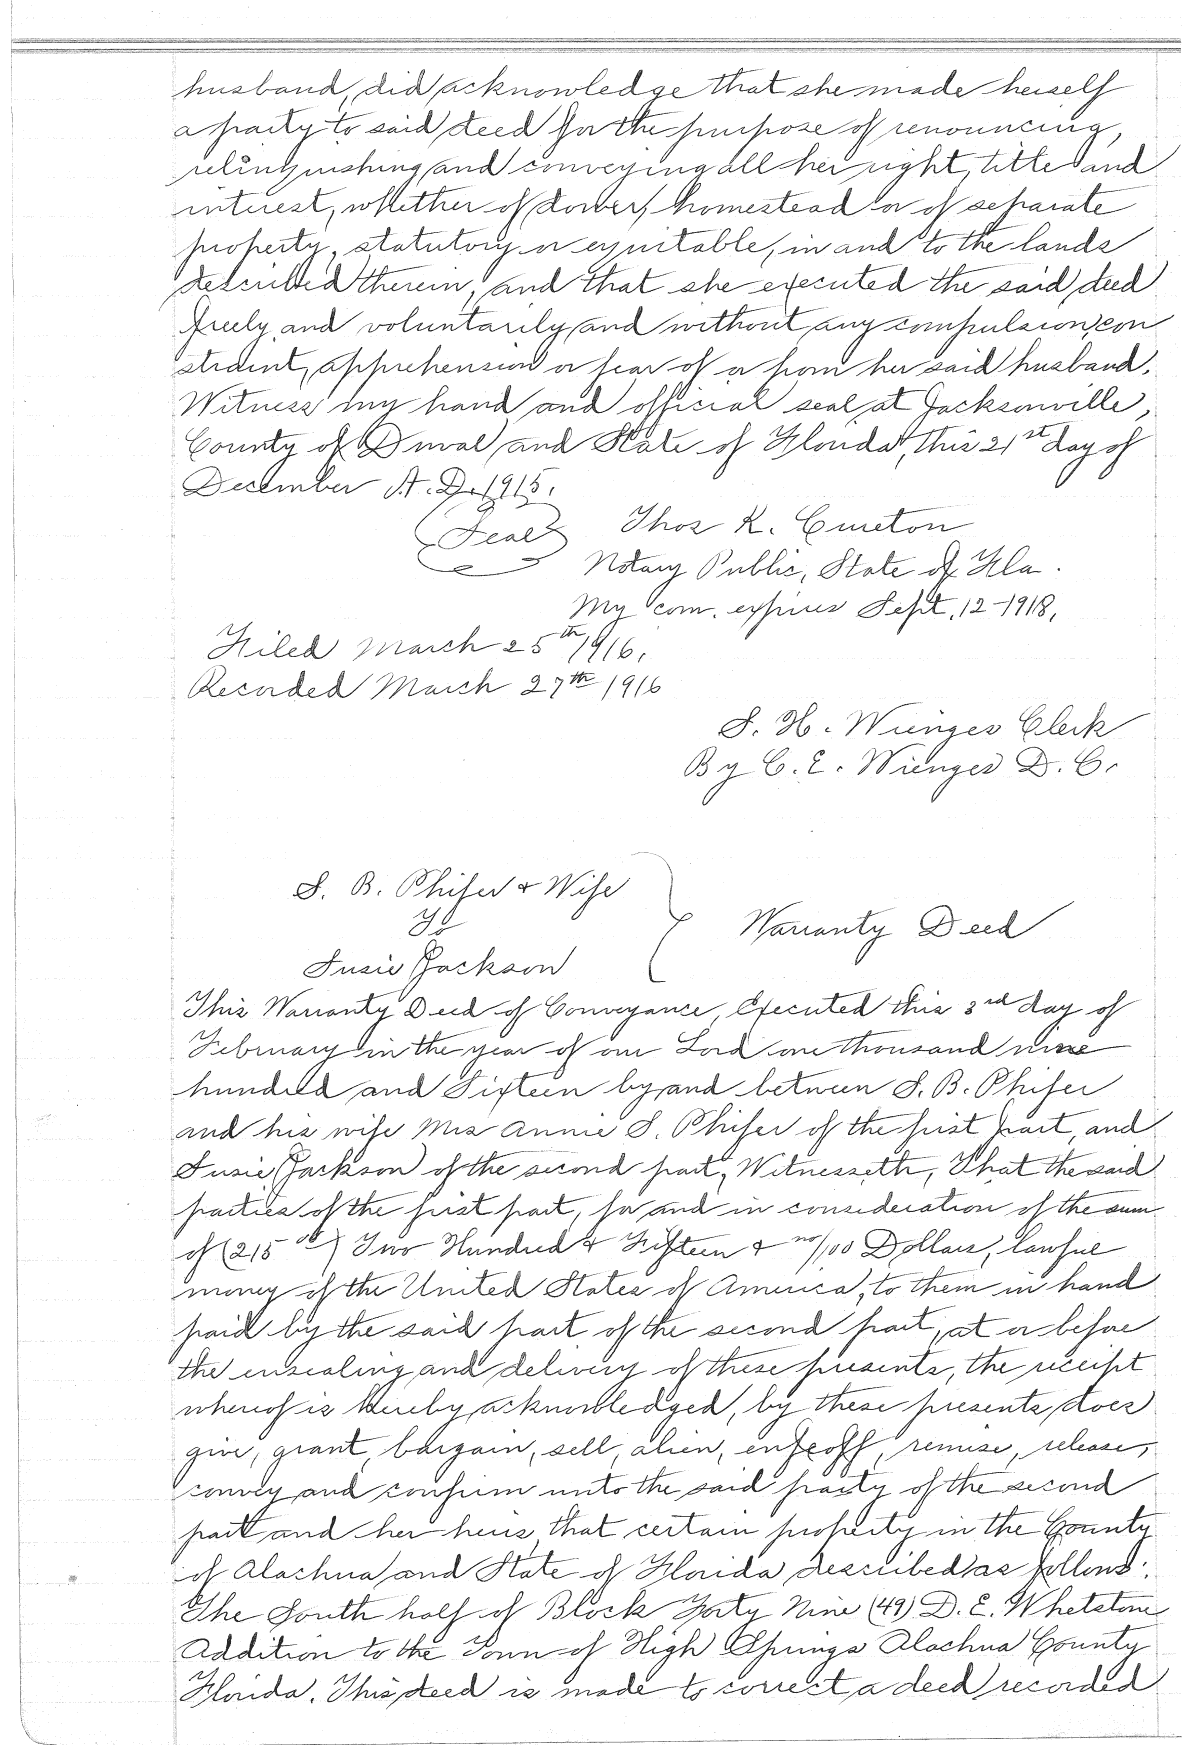 husband, did acknowledge that she made herself
a party to said deed for the purpose of renouncing,
relinquishing and conveying all her right, title and
interest, whether of dower, homestead or of separate
property, statutory or equitable, in and to the lands
described therein, and that she executed the said deed
freely and voluntarily and without any compulsion, con
straint, apprehension or fear of or from her said husband.
Witness my hand and official seal at Jacksonville,
County of Duval and State of Florida, this 21st day of
December A. D. 1915.
(Seal) Thos K. Cureton
Notary Public, State of Fla.
My com. expires Sept. 12-1918,
Filed March 25th 1916.
Recorded March 27th 1916
S. H. Wienges Clerk
By C. E. Wienges D. C.
S. B. Phifer & Wife
To
Warranty Deed
Susie Jackson
This Warranty Deed of Conveyance, Executed this 3rd day of
February in the year of our Lord one thousand nine
hundred and Sixteen by and between S. B. Phifer
and his wife Mrs Annie S. Phifer of the first part, and
Susie Jackson of the second part, Witnesseth, That the said
parties of the first part, for and in consideration of the sum
of (215 00) Two Hundred & Fifteen & no/100 Dollars, lawful
money of the United States of America, to them in hand
paid by the said part of the second part, at or before
the ensealing and delivery of these presents, the receipt
whereof is hereby acknowledged, by these presents does
give, grant, bargain, sell, alien, enfeoff, remise, release,
convey and confirm unto the said party of the second
part and her heirs, that certain property in the County
of Alachua and State of Florida described as follows:
The South half of Block Forty Nine (49) D. E. Whetstone
Addition to the Town of High Springs Alachua County
Florida. This deed is made to correct a deed recorded